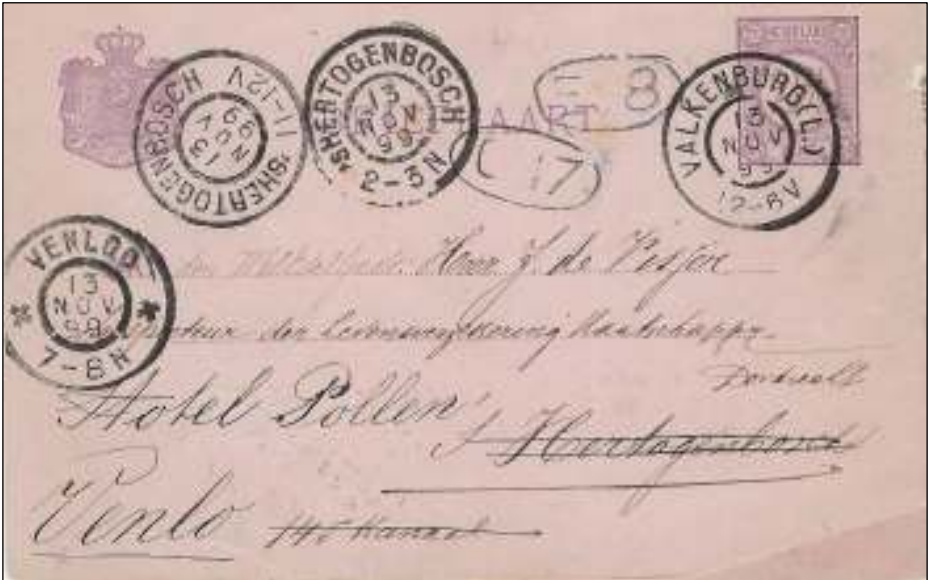 'SHERTOGENBOSCH 13 NOV 99 11-12V
'SHERTOGENBOSCH 13 NOV 99 2-3N
AART
E 8
L 17
VALKENBURG (L.) 13 NOV 99 12-6V
VENLOO 13 NOV 99 7-8N
Heer J. de Visser
der Levensverzekering Maatschappy
Dordrecht
Hotel Pollen
's Hertogenbosch
Venlo